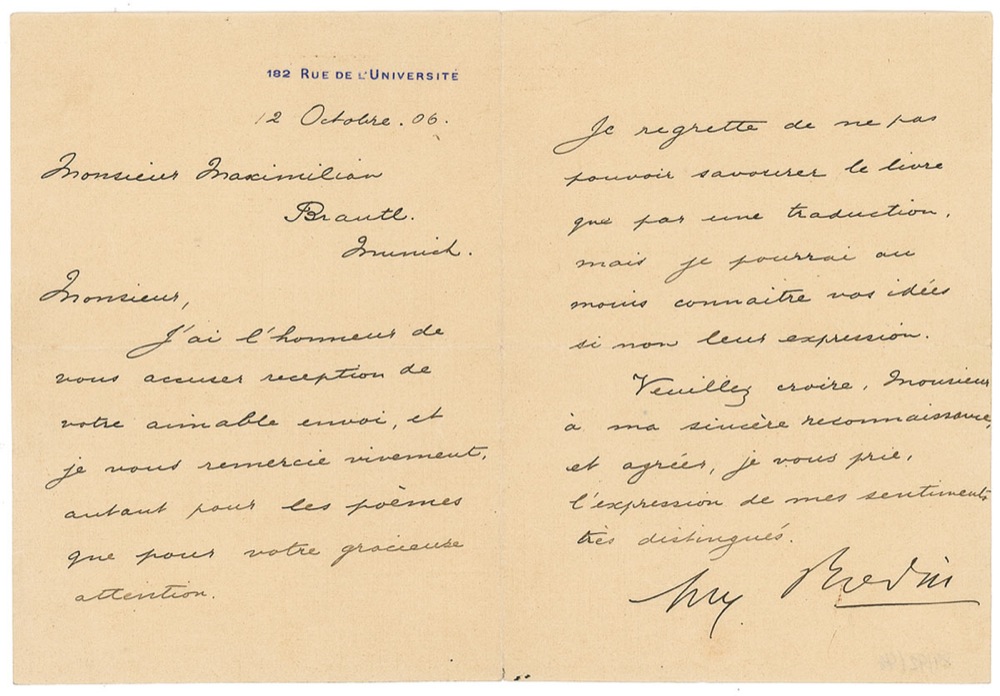 182 RUE DE L'UNIVERSITÉ
12 Octobre. 06.
Monsieur Maximilian
Brautl.
Munich.
Monsieur,
J'ai l'honneur de
vous accuser reception de
votre aimable envoi, et
je vous remercie vivement,
autant pour les poèmes
que pour votre gracieuse
attention.
Je regrette de ne pas
pouvoir savourer le livre
que par une traduction,
mais je pourrai au
moins connaitre vos idées
si non leur expression.
Veuillez croire, Monsieur
à ma sincère reconnaissance,
et agréer, je vous prie,
l'expression de mes sentiments
très distingués.
Rodin